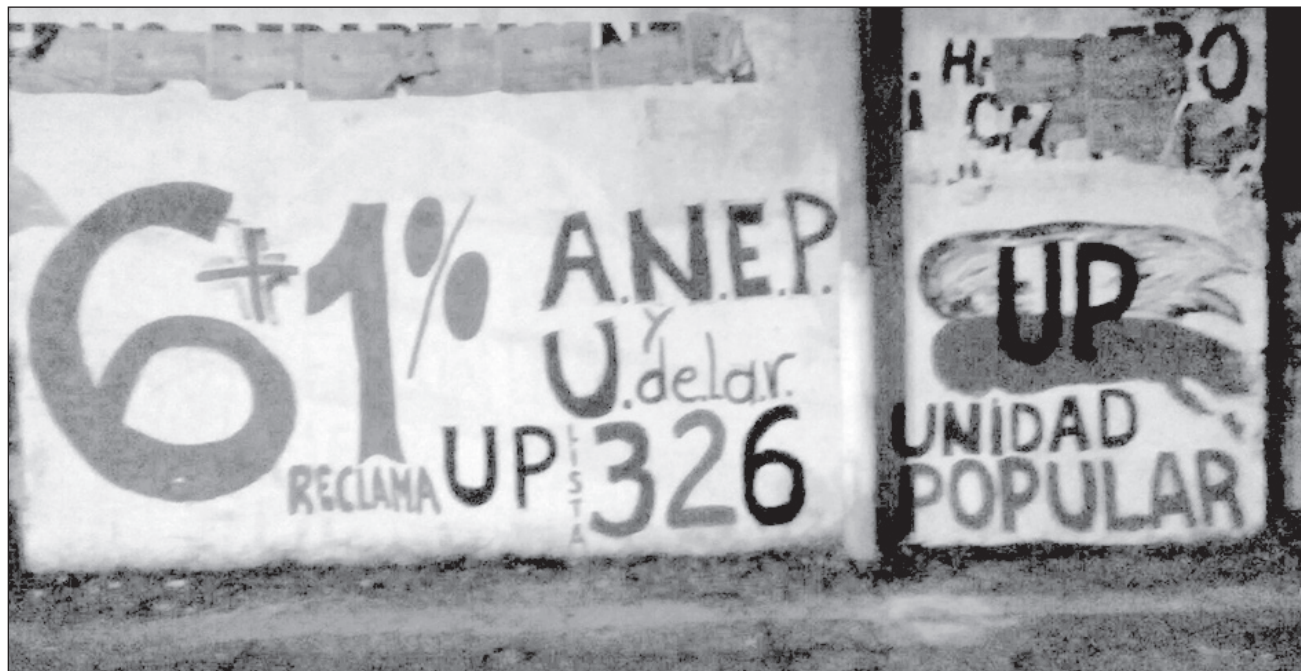 6+1% A.N.E.P.
y
U.delar.
RECLAMA UP LISTA 326
UP
UNIDAD
POPULAR